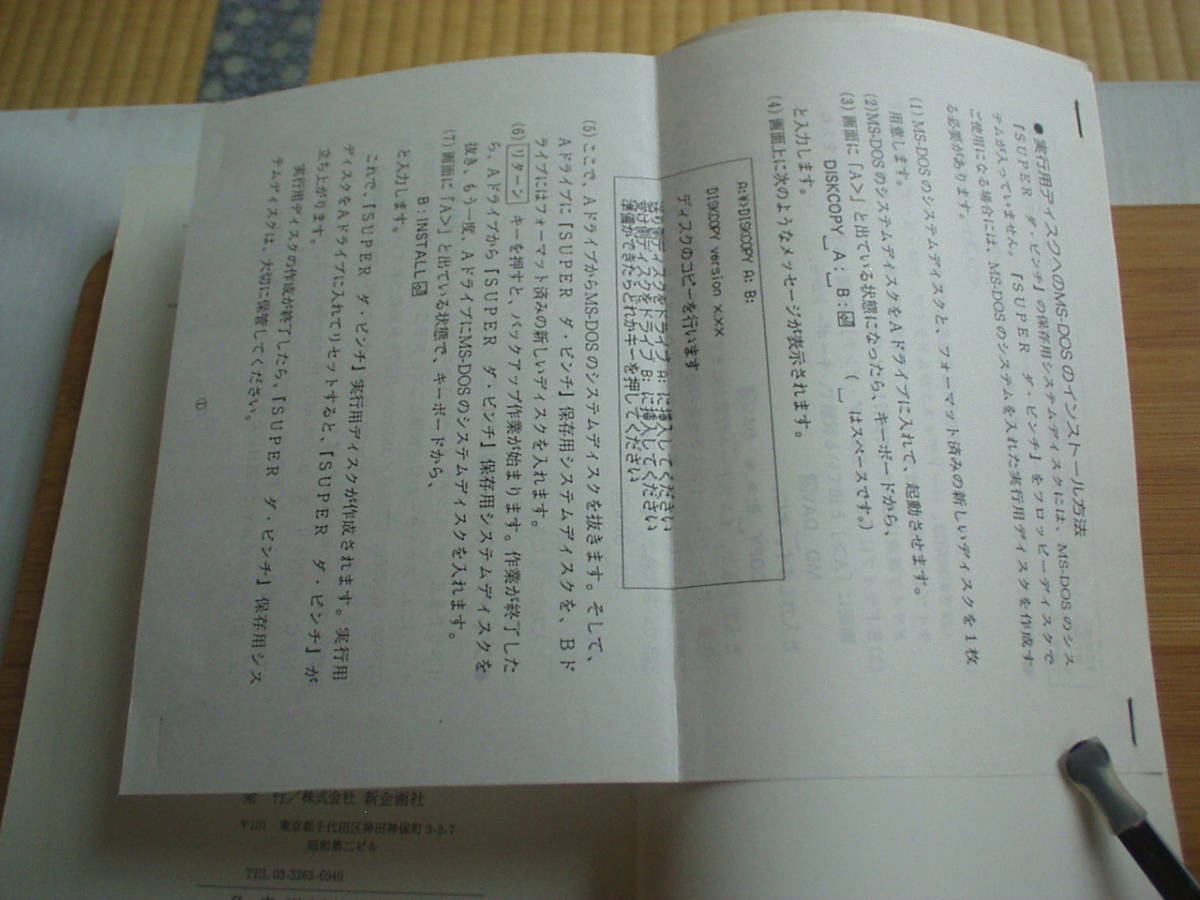 ●実行用ディスクへのMS-DOSのインストール方法
『SUPER ダ・ビンチ』の保存用システムディスクには、MS-DOSのシス
テムが入っていません。『SUPER ダ・ビンチ』をフロッピーディスクで
ご使用になる場合には、MS-DOSのシステムを入れた実行用ディスクを作成す
る必要があります。
(1)MS-DOSのシステムディスクと、フォーマット済みの新しいディスクを1枚
用意します。
(2)MS-DOSのシステムディスクをAドライブに入れて、起動させます。
(3)画面に「A>」と出ている状態になったら、キーボードから、
DISKCOPY␣A:␣B:⏎ (␣はスペースです。)
と入力します。
(4)画面上に次のようなメッセージが表示されます。
A:¥>DISKCOPY A: B:
DISKCOPY version x.xx
ディスクのコピーを行います
送り側ディスクをドライブ A: に挿入してください
受け側ディスクをドライブ B: に挿入してください
準備ができたらどれかキーを押してください
(5)ここで、AドライブからMS-DOSのシステムディスクを抜きます。そして、
Aドライブに『SUPER ダ・ビンチ』保存用システムディスクを、Bド
ライブにはフォーマット済みの新しいディスクを入れます。
(6)リターン キーを押すと、バックアップ作業が始まります。作業が終了した
ら、Aドライブから『SUPER ダ・ビンチ』保存用システムディスクを
抜き、もう一度、AドライブにMS-DOSのシステムディスクを入れます。
(7)画面に「A>」と出ている状態で、キーボードから、
B:INSTALL⏎
と入力します。
これで、『SUPER ダ・ビンチ』実行用ディスクが作成されます。実行用
ディスクをAドライブに入れてリセットすると、『SUPER ダ・ビンチ』が
立ち上がります。
実行用ディスクの作成が終了したら、『SUPER ダ・ビンチ』保存用シス
テムディスクは、大切に保管してください。
①
発 行/株式会社 新企画社
〒101 東京都千代田区神田神保町3-3-7
昭和第二ビル
TEL 03-3263-6940